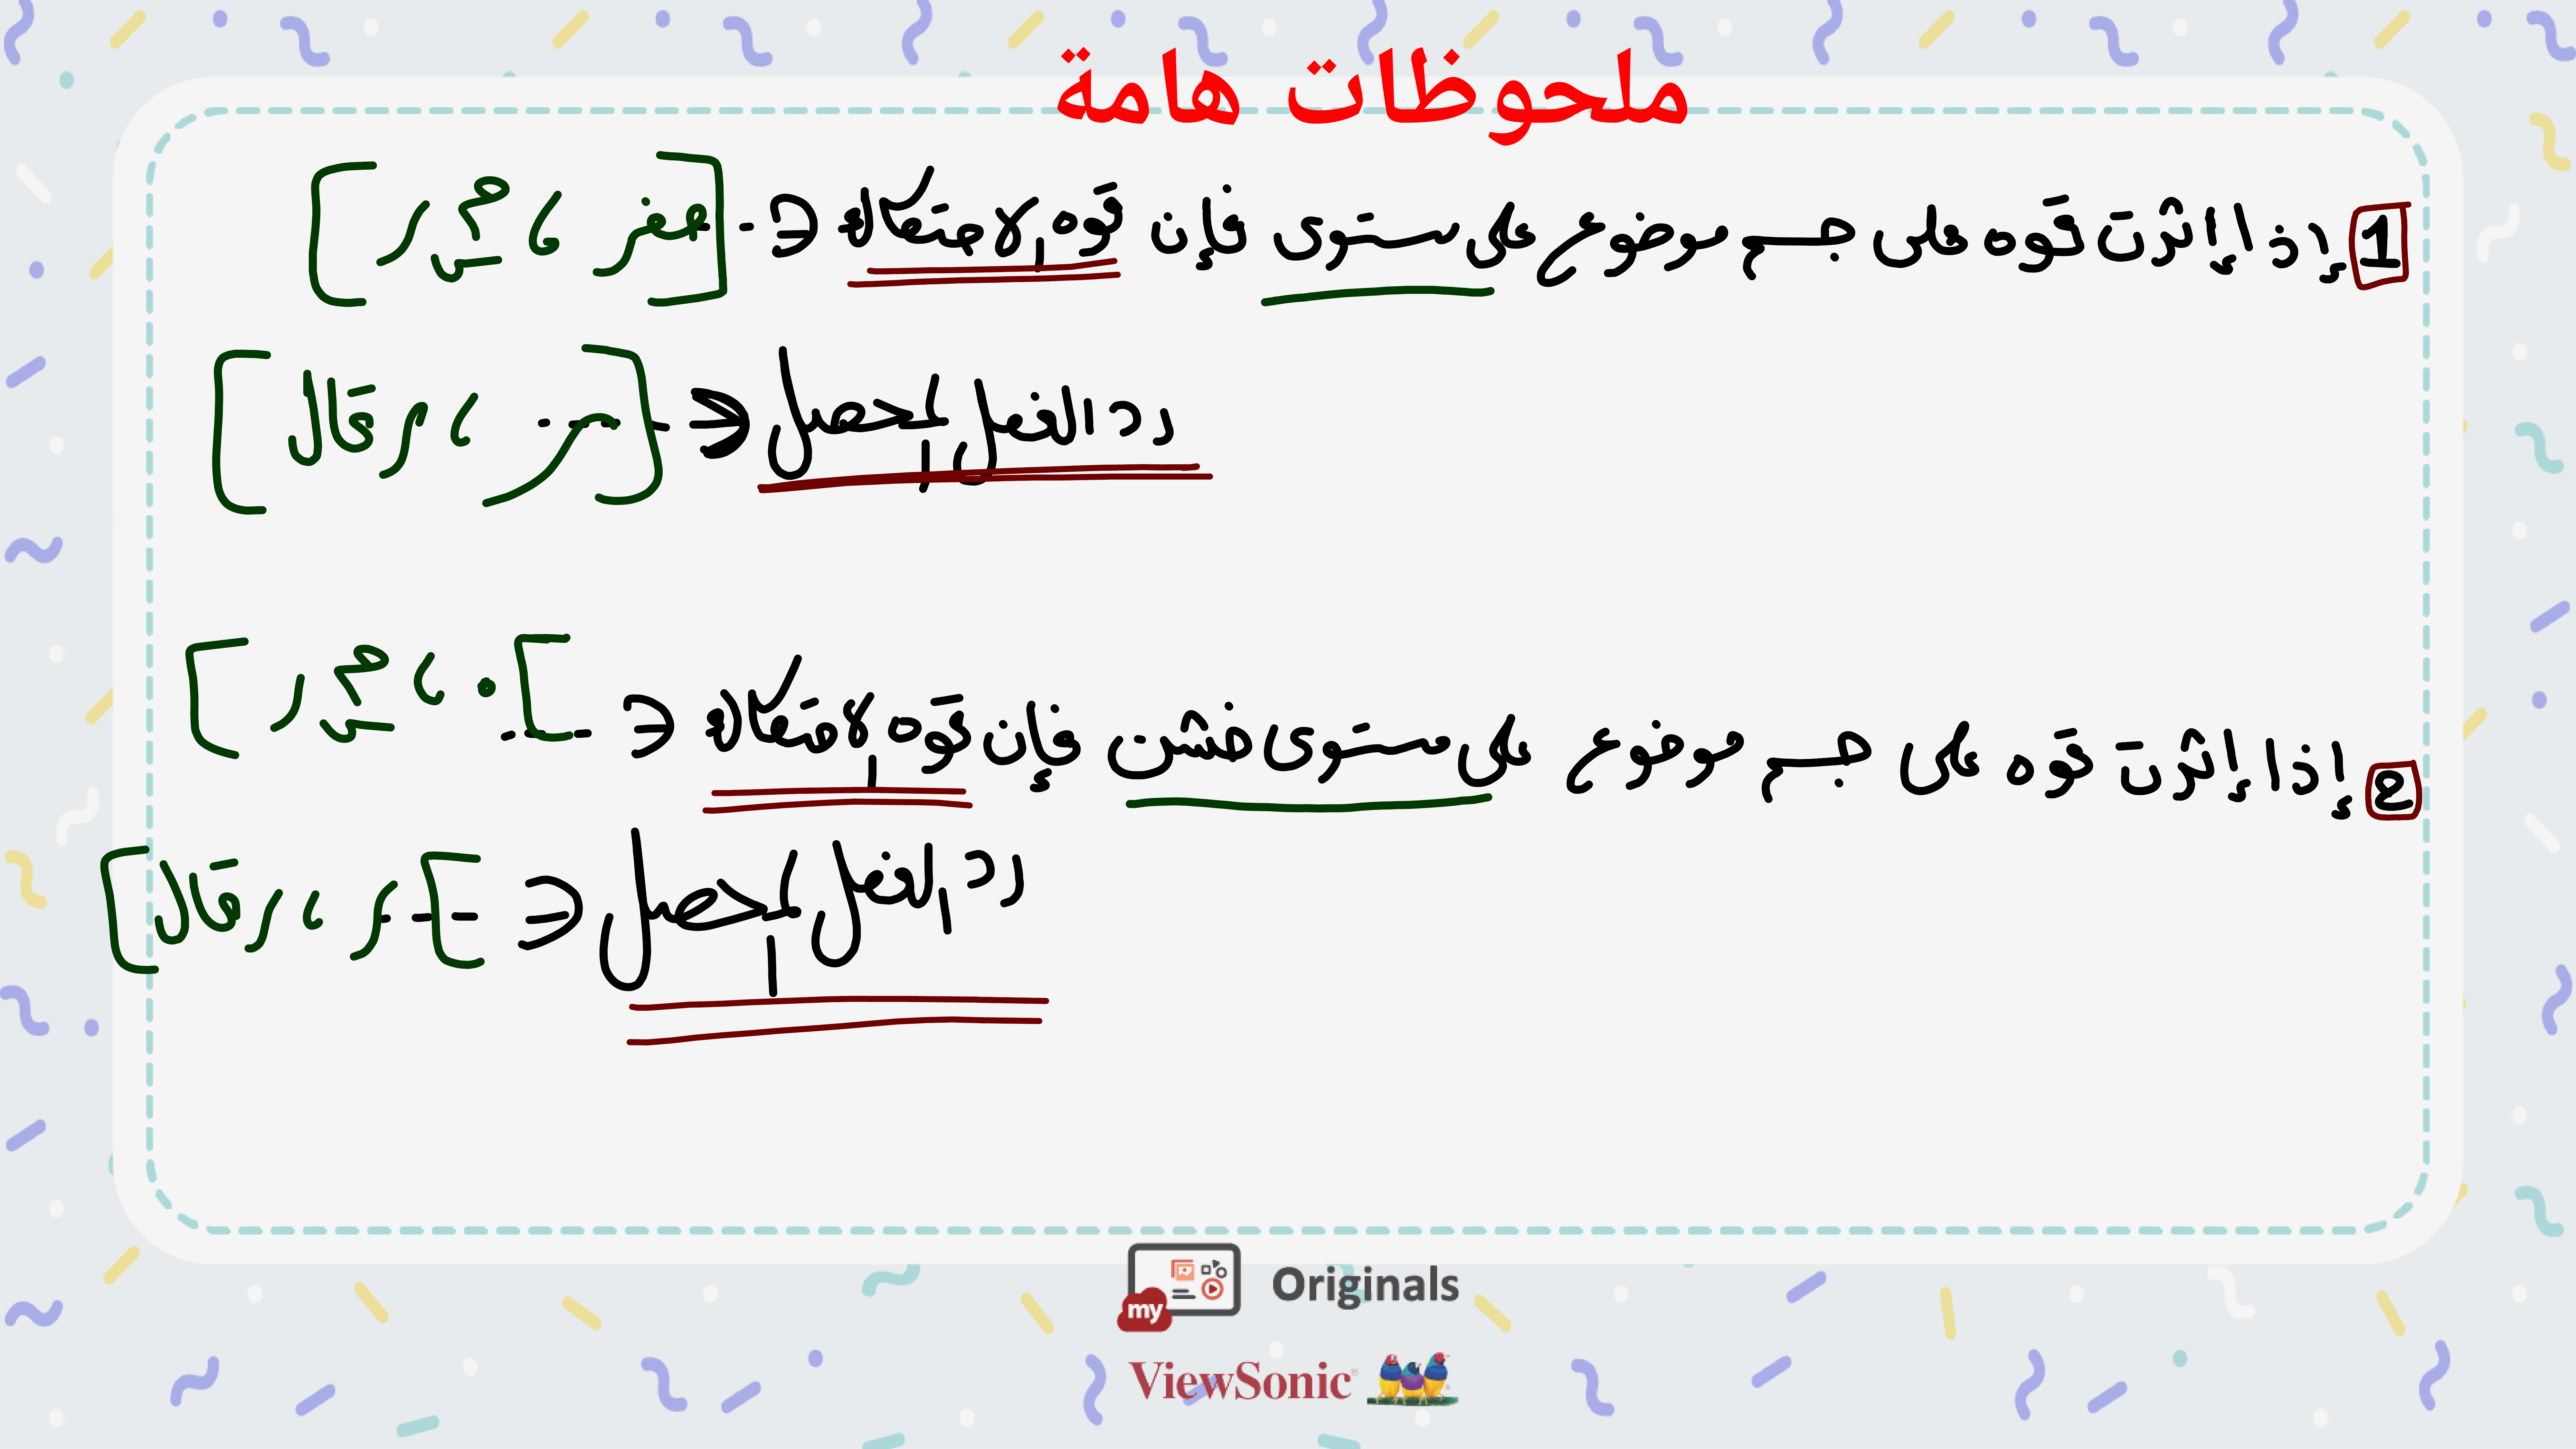 ملحوظات هامة
1 إذا إثرت قوه على جسم موضوع على ستوى فإن قوه الاحتكاك ∈ [صفر ، م س ر]
رد الفعل المحصل ∈ [ر ، ر قا ل]
2 إذا إثرت قوه على جسم موضوع على مستوى خشن فإن قوه الاحتكاك ∈ [٠ ، م س ر]
رد الفعل المحصل ∈ [ر ، ر قا ل]
my Originals
ViewSonic